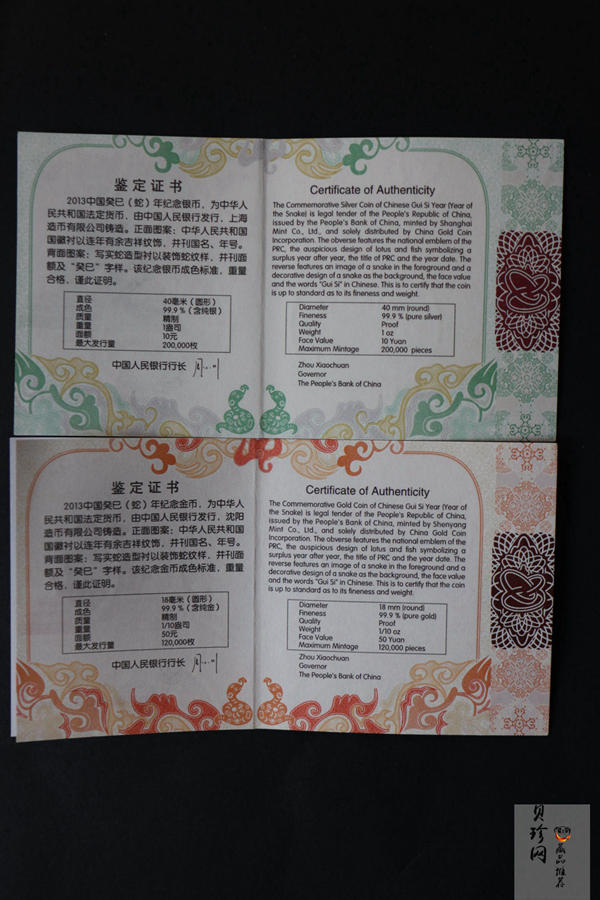 鉴定证书
2013中国癸巳（蛇）年纪念银币，为中华人
民共和国法定货币，由中国人民银行发行，上海
造币有限公司铸造。正面图案：中华人民共和国
国徽衬以连年有余吉祥纹饰，并刊国名、年号。
背面图案：写实蛇造型衬以装饰蛇纹样，并刊面
额及“癸巳”字样。该纪念银币成色标准，重量
合格，谨此证明。
直径 40毫米（圆形）
成色 99.9％（含纯银）
质量 精制
重量 1盎司
面额 10元
最大发行量 200,000枚
中国人民银行行长
Certificate of Authenticity
The Commemorative Silver Coin of Chinese Gui Si Year (Year of
the Snake) is legal tender of the People's Republic of China,
issued by the People's Bank of China, minted by Shanghai
Mint Co., Ltd., and solely distributed by China Gold Coin
Incorporation. The obverse features the national emblem of the
PRC, the auspicious design of lotus and fish symbolizing a
surplus year after year, the title of PRC and the year date. The
reverse features an image of a snake in the foreground and a
decorative design of a snake as the background, the face value
and the words "Gui Si" in Chinese. This is to certify that the coin
is up to standard as to its fineness and weight.
Diameter 40 mm (round)
Fineness 99.9 % (pure silver)
Quality Proof
Weight 1 oz
Face Value 10 Yuan
Maximum Mintage 200,000 pieces
Zhou Xiaochuan
Governor
The People's Bank of China
鉴定证书
2013中国癸巳（蛇）年纪念金币，为中华人
民共和国法定货币，由中国人民银行发行，沈阳
造币有限公司铸造。正面图案：中华人民共和国
国徽衬以连年有余吉祥纹饰，并刊国名、年号。
背面图案：写实蛇造型衬以装饰蛇纹样，并刊面
额及“癸巳”字样。该纪念金币成色标准，重量
合格，谨此证明。
直径 18毫米（圆形）
成色 99.9％（含纯金）
质量 精制
重量 1/10盎司
面额 50元
最大发行量 120,000枚
中国人民银行行长
Certificate of Authenticity
The Commemorative Gold Coin of Chinese Gui Si Year (Year of
the Snake) is legal tender of the People's Republic of China,
issued by the People's Bank of China, minted by Shenyang
Mint Co., Ltd., and solely distributed by China Gold Coin
Incorporation. The obverse features the national emblem of the
PRC, the auspicious design of lotus and fish symbolizing a
surplus year after year, the title of PRC and the year date. The
reverse features an image of a snake in the foreground and a
decorative design of a snake as the background, the face value
and the words "Gui Si" in Chinese. This is to certify that the coin
is up to standard as to its fineness and weight.
Diameter 18 mm (round)
Fineness 99.9 % (pure gold)
Quality Proof
Weight 1/10 oz
Face Value 50 Yuan
Maximum Mintage 120,000 pieces
Zhou Xiaochuan
Governor
The People's Bank of China
贝珍网
藏品推荐